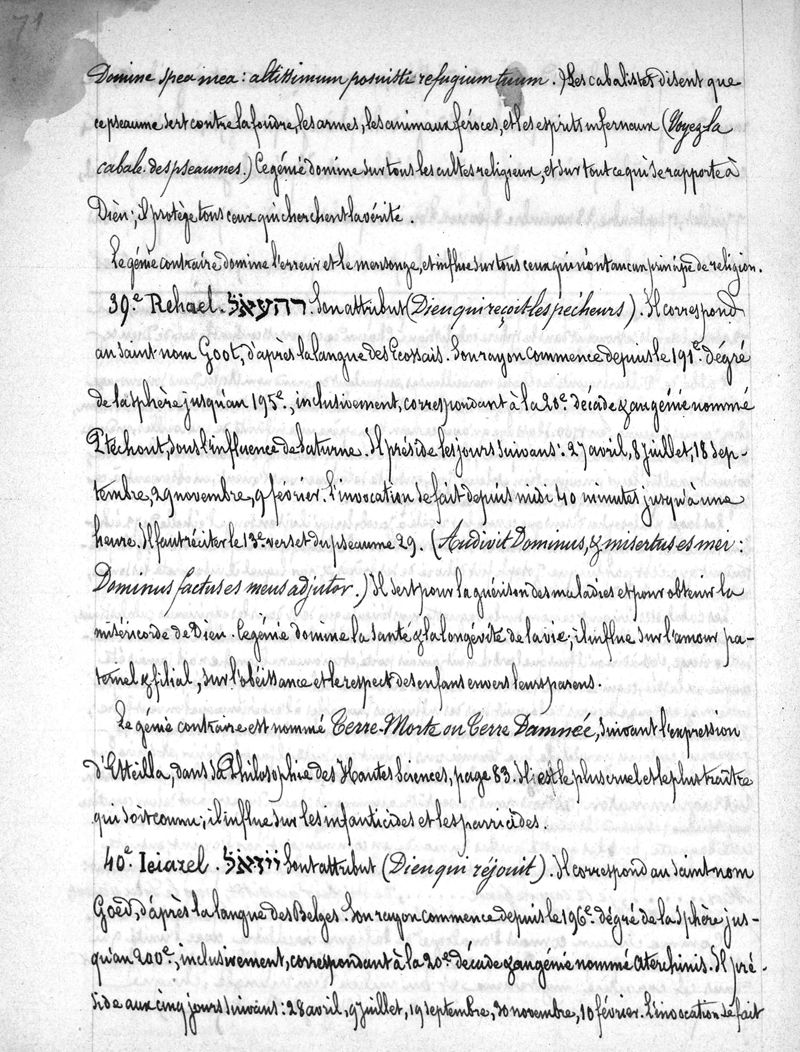 71
Domine spea mea: altissimum posuisti refugium tuum.) Les cabalistes disent que
ce pseaume sert contre la foudre, les armes, les animaux féroces, et les esprits infernaux (Voyez la
cabale des pseaumes.) Ce génie domine sur tous les cultes religieux, et sur tout ce qui se rapporte à
Dieu; il protège tous ceux qui cherchent la vérité.
Le génie contraire domine l'erreur et le mensonge, et influe sur tous ceux qui n'ont aucun principe de religion.
39.e Rehael. רהעאל. Son attribut (Dieu qui reçoit les pécheurs). Il correspond
au saint nom Goot, d'après la langue des Ecossais. Son rayon commence depuis le 191e. dégré
de la sphère jusqu'au 195e., inclusivement, correspondant à la 20e. décade & au génie nommé
Ptéchout, sous l'influence de Saturne. Il préside les jours suivans: 27 avril, 8 juillet, 18 sep-
tembre, 29 novembre, 9 février. L'invocation se fait depuis midi 40 minutes jusqu'à une
heure. Il faut réciter le 13e. verset du pseaume 29. (Audivit Dominus, & misertus es mei:
Dominus factus es meus adjutor.) Il sert pour la guérison des maladies et pour obtenir la
miséricorde de Dieu. Ce génie domine la santé & la longévité de la vie; il influe sur l'amour pa-
ternel & filial, sur l'obéissance et le respect des enfans envers leurs parens.
Le génie contraire est nommé Terre-Morte ou Terre Damnée, suivant l'expression
d'Etteilla, dans sa Philosophie des Hautes Sciences, page 83. Il est le plus cruel et le plus traître
qui soit connu; il influe sur les infanticides et les parricides.
40.e Ieiazel. ייזאל Sont attribut (Dieu qui réjouit). Il correspond au saint nom
Goëd, d'après la langue des Belges. Son rayon commence depuis le 196e. dégré de la sphère jus-
qu'au 200e., inclusivement, correspondant à la 20e. décade & au génie nommé Aterchinis. Il pré-
side aux cinq jours suivans: 28 avril, 9 juillet, 19 septembre, 30 novembre, 10 février. L'invocation se fait